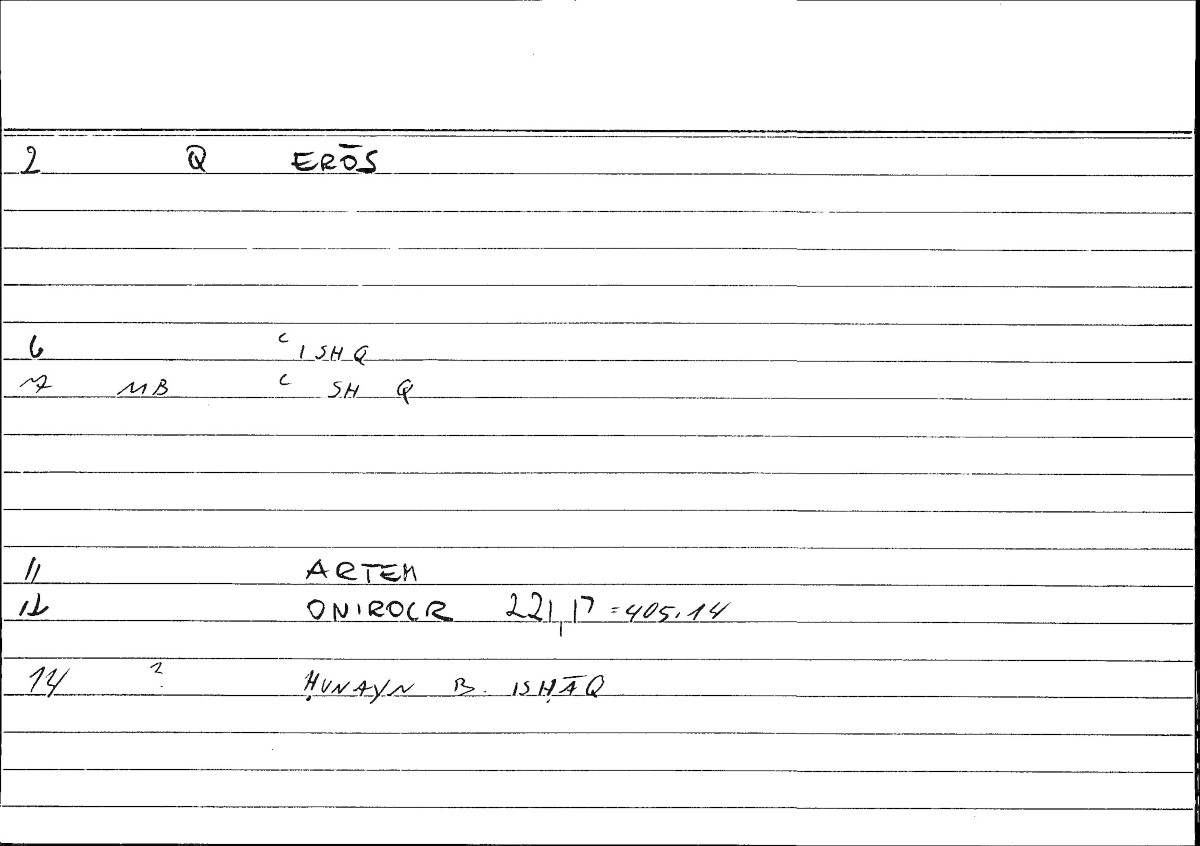 2 Q ERŌS
6 ʿISHQ
7 MB ʿ SH Q
11 ARTEM
12 ONIROCR 221,17 = 405.14
14 ? ḤUNAYN B. ISḤĀQ